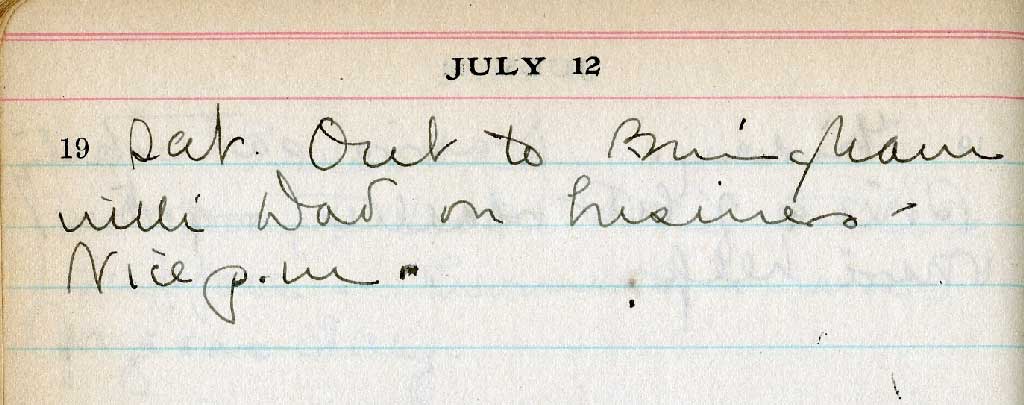 JULY 12
19 Sat. Out to Bringham
with Dad on business -
Nice p.m.